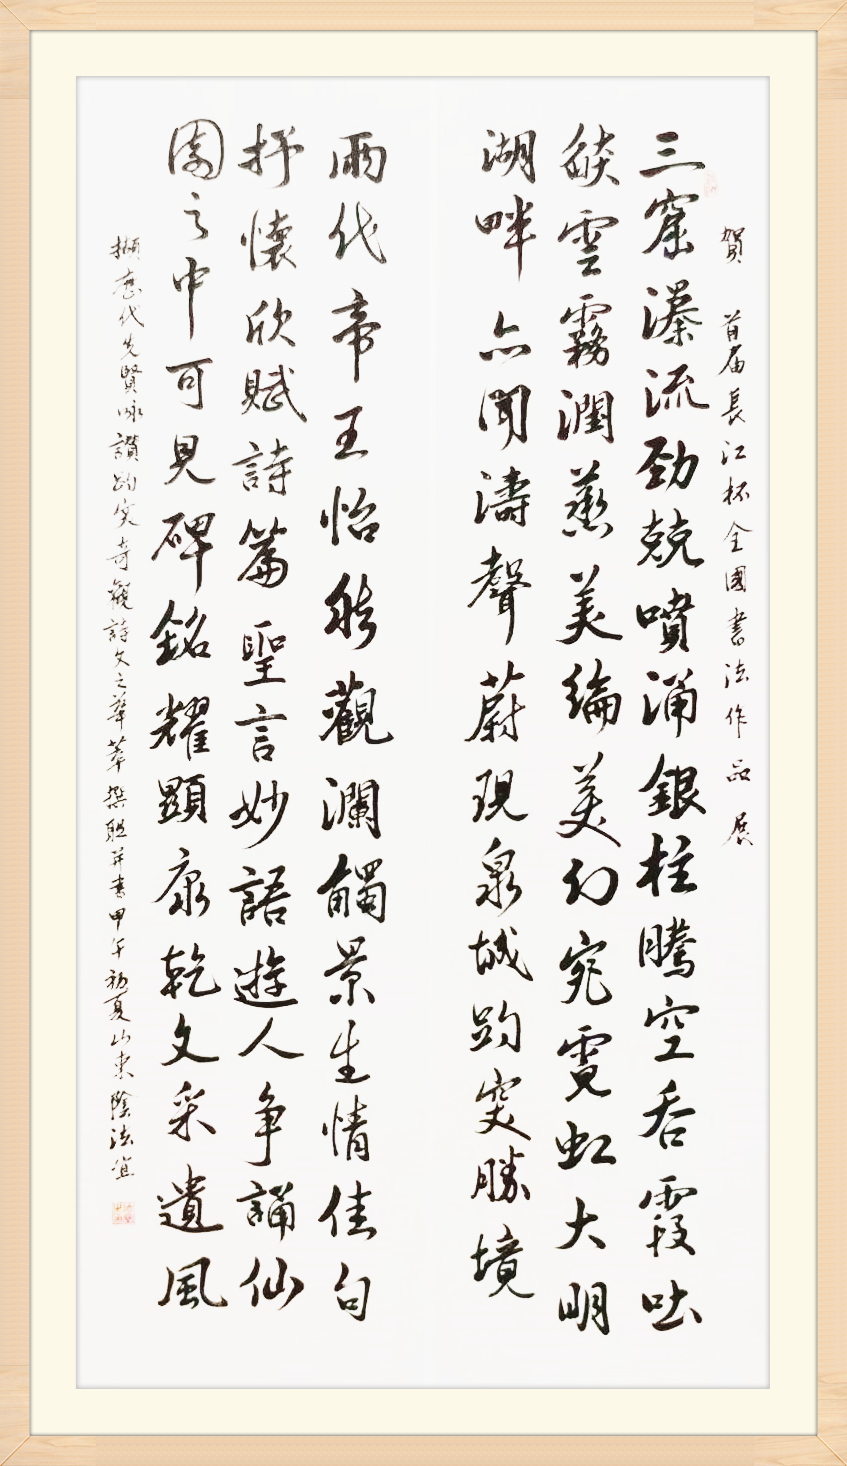 賀 首届長江杯全國書法作品展
三窟瀑流勁競噴涌銀柱騰空吞霞吐
燄雲霧潤蒸美綸美幻宛霓虹大明
湖畔亦聞濤聲蔚現泉城趵突勝境
兩代帝王怡然觀瀾觸景生情佳句
抒懷欣賦詩篇聖言妙語遊人争誦仙
園之中可見碑銘耀顯康乾文采遺風
擷歷代先賢咏讚趵突奇觀詩文之華萃撰聯并書甲午初夏山東陰法宜